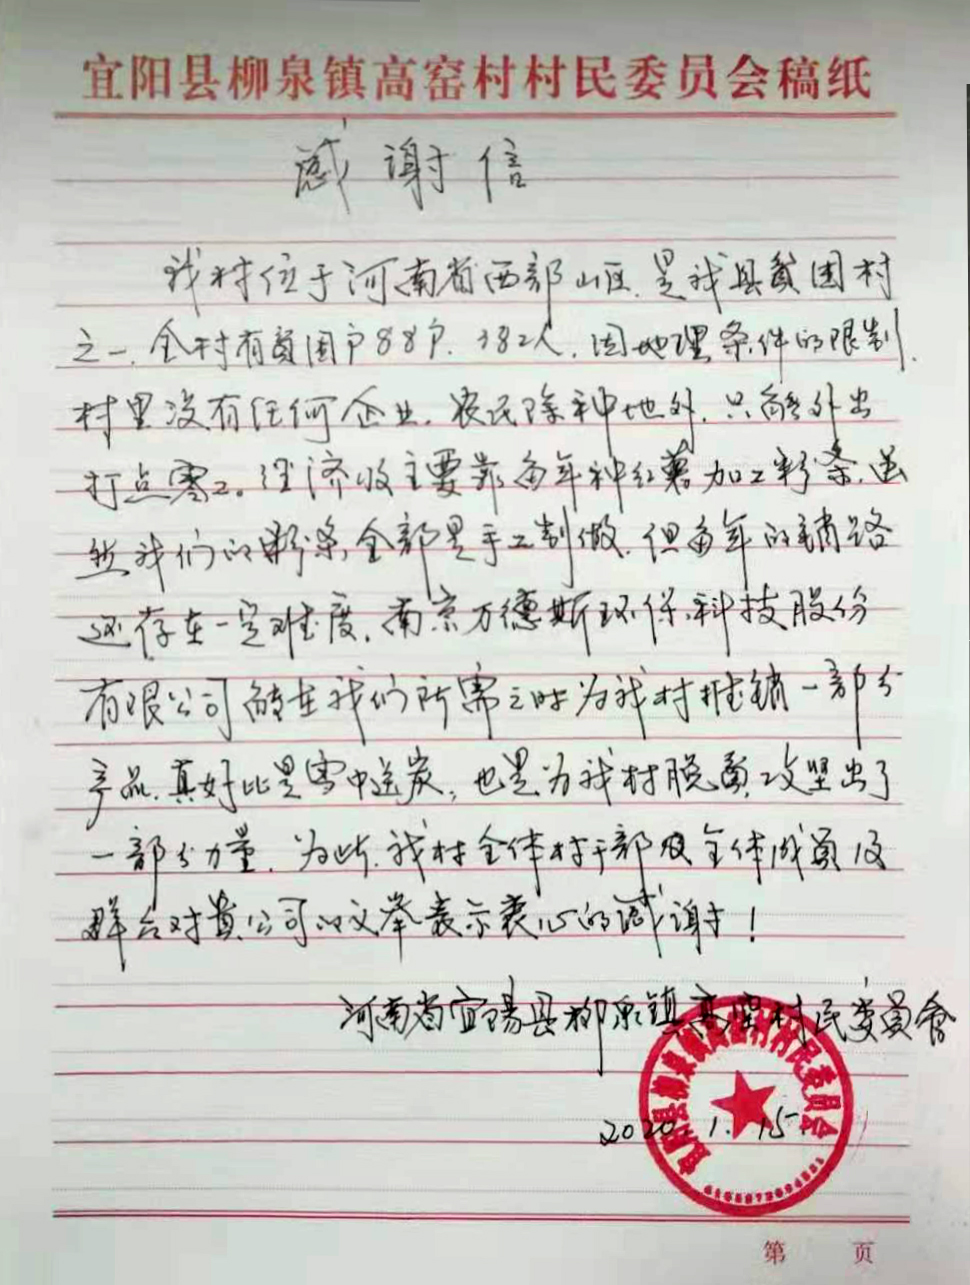 宜阳县柳泉镇高窑村村民委员会稿纸
感谢信
我村位于河南省西部山区.是我县贫困村
之一.全村有贫困户88户.382人.因地理条件的限制.
村里没有任何企业.农民除种地外.只能外出
打点零工。经济收主要靠每年种红薯加工粉条.虽
然我们的粉条全部是手工制做.但每年的销路
还存在一定难度.南京万德斯环保科技股份
有限公司能在我们所需之时为我村推销一部分
产品.真好比是雪中送炭,也是为我村脱贫攻坚出了
一部分力量.为此.我村全体村干部及全体成员及
群众对贵公司的义举表示衷心的感谢!
河南省宜阳县柳泉镇高窑村民委员会
2020.1.15
宜阳县柳泉镇高窑村村民委员会
第 页